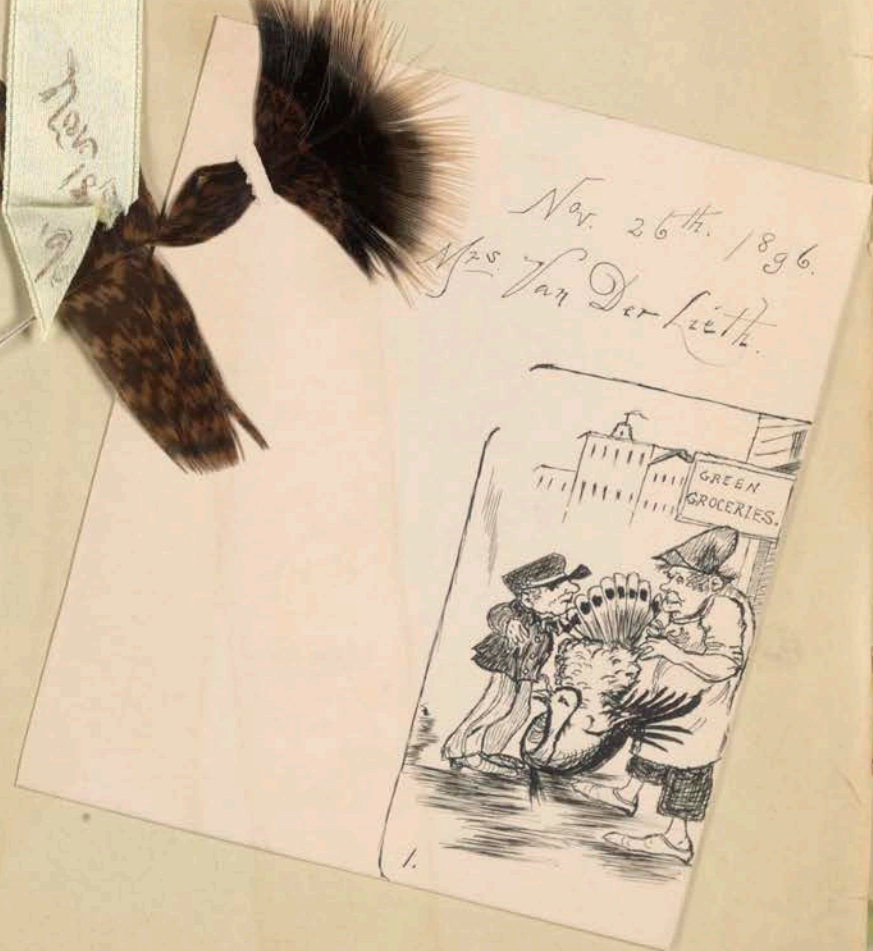 Nov.
Nov. 26th. 1896.
Mrs. Van Der Lieth.
GREEN
GROCERIES.
1.